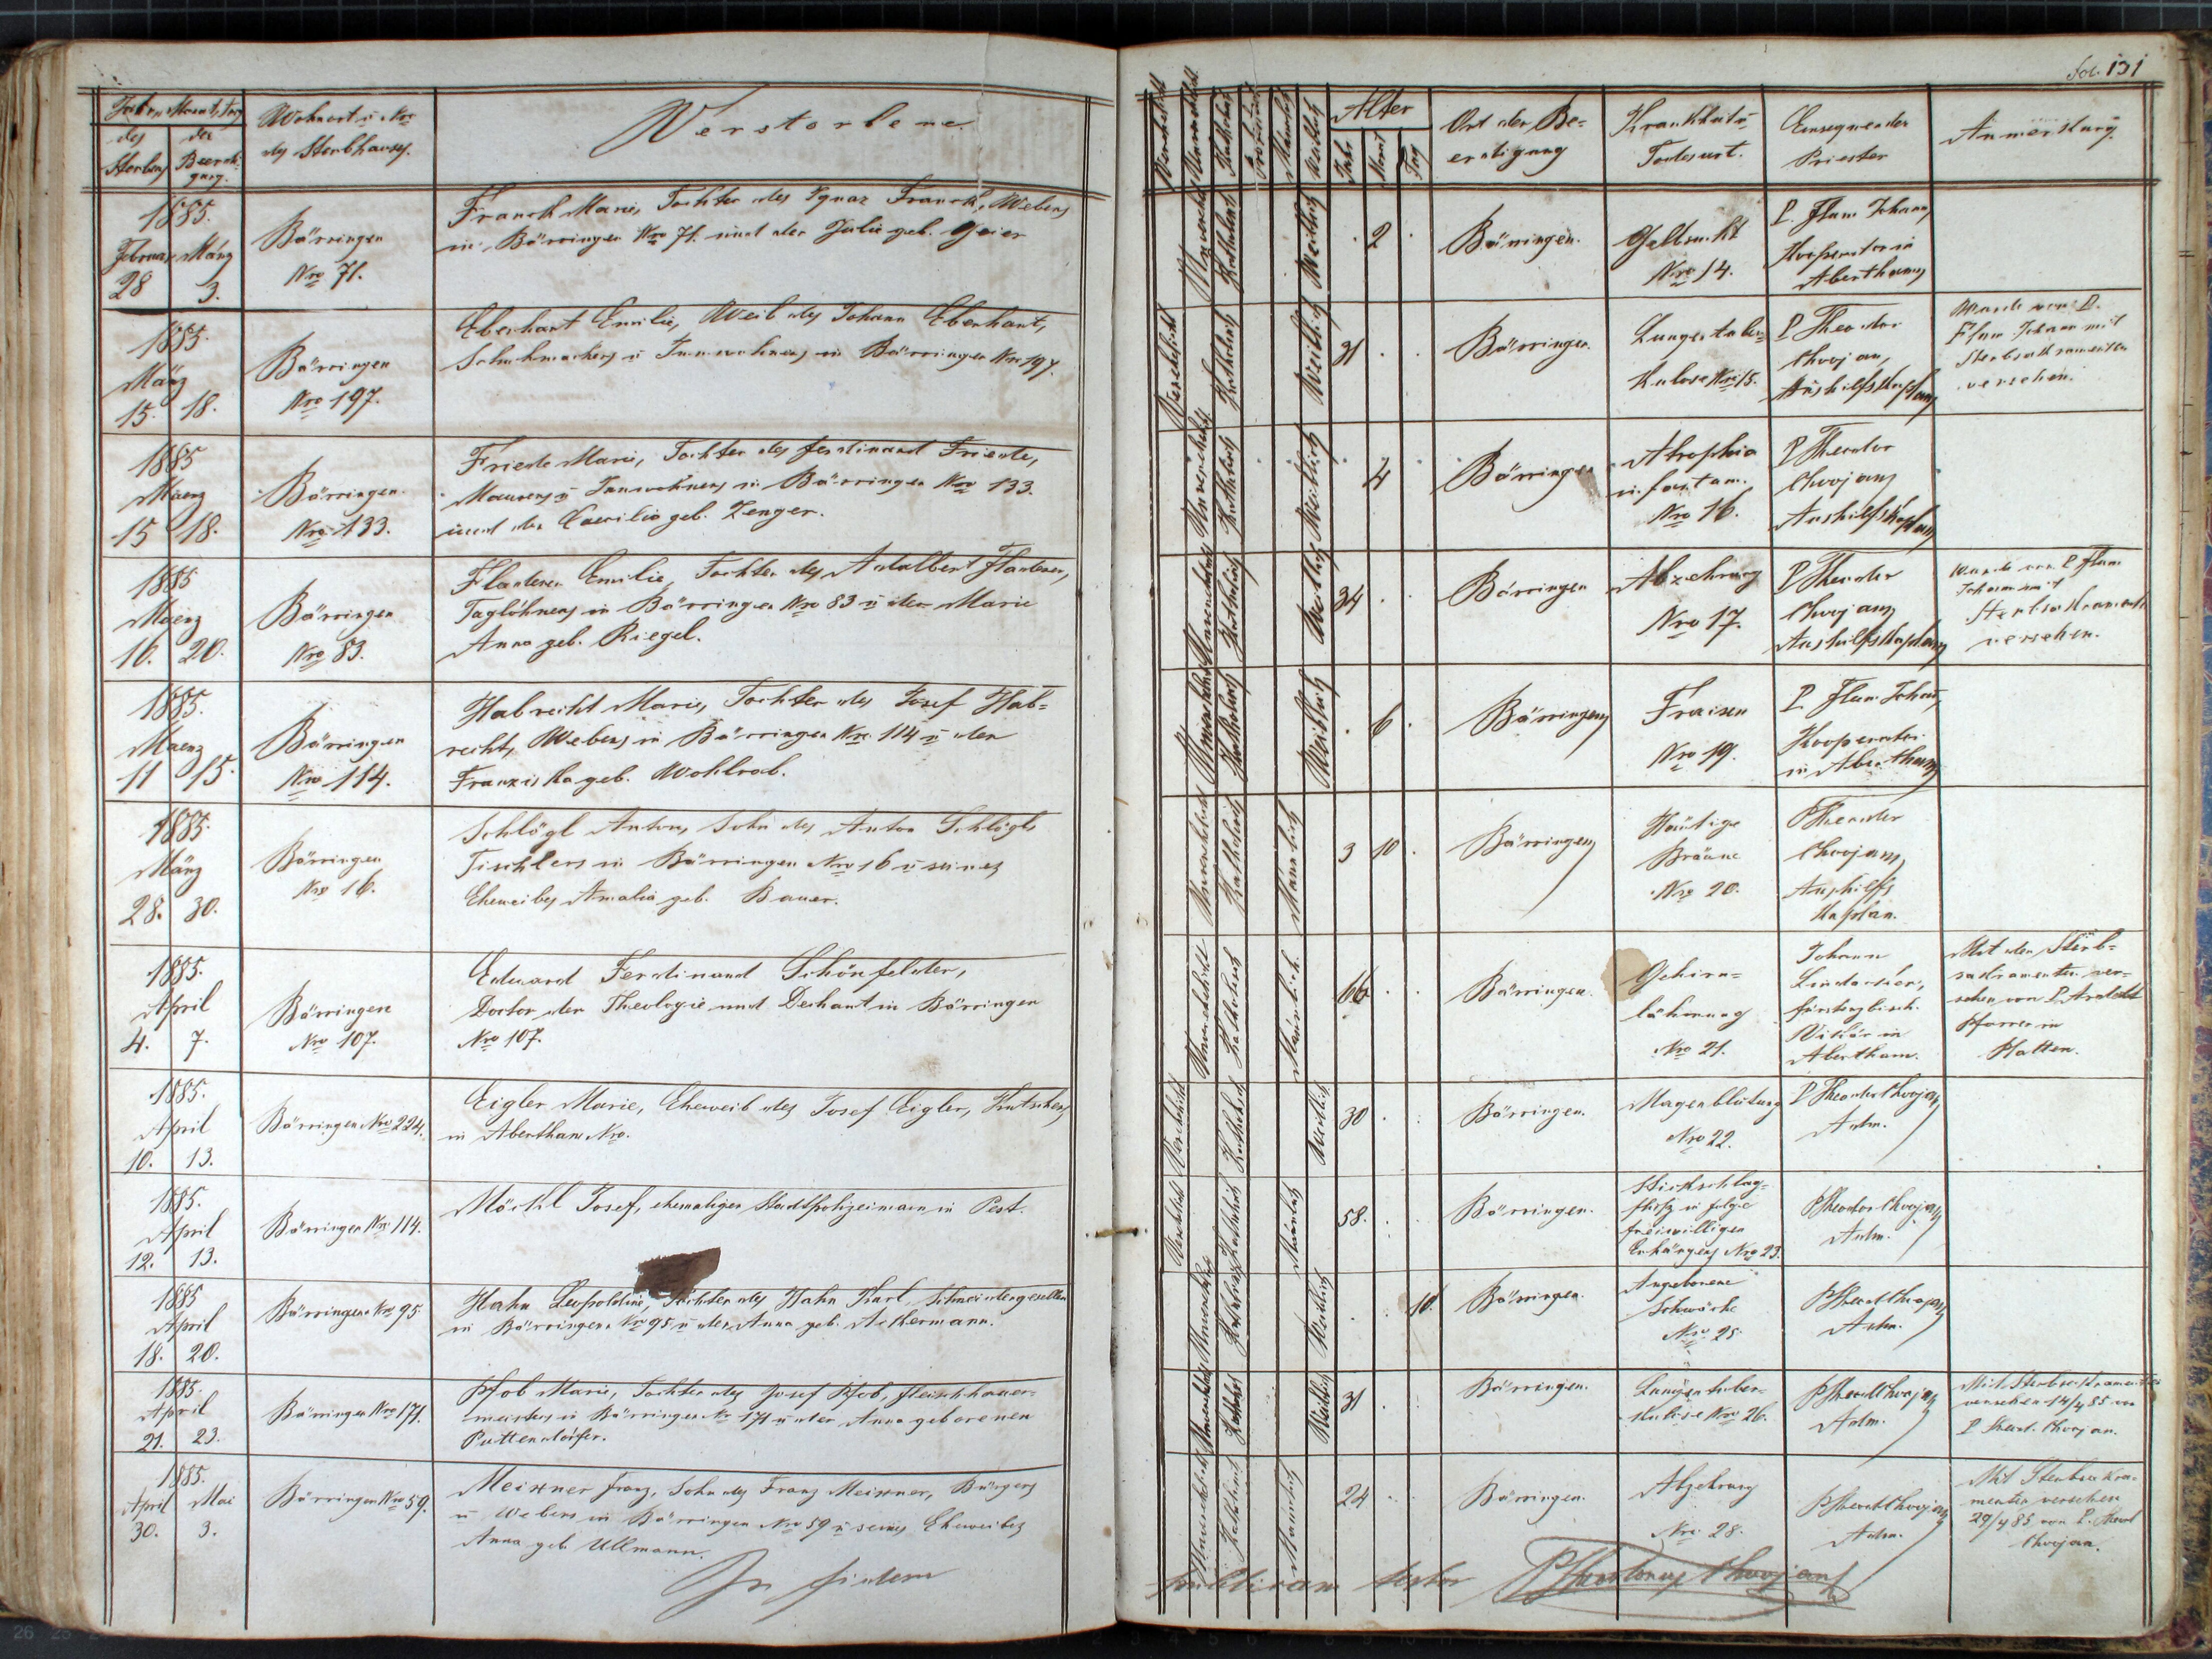 des
der
Sterbens
Beerdi-
gung.
Wohnort u Nro
des Sterbhauses.
Verstorbene
1885.
Februar März
28 3.
Bärringen
Nro 71.
Franck Marie, Tochter des Ignaz Franck, Webers
in Bärringen Nro 71. und der Julie geb. Geier
1885.
März
15. 18.
Bärringen
Nro 197.
Eberhart Emilie, Weib des Johann Eberhart,
Schuhmachers u Innwohners in Bärringen Nro 197.
1885
Maerz
15 18.
Bärringen
Nro 133.
Friede Marie, Tochter des Ferdinand Friede,
Maurers u Innwohners in Bärringen Nro 133.
und der Caecilia geb. Zenger.
1885
Maerz
16. 20.
Bärringen
Nro 83.
Flanderer Emilie, Tochter des Adalbert Flanderer,
Taglöhners in Bärringen Nro 83 u der Marie
Anna geb. Riegel.
1885.
Maerz
11 15.
Bärringen
Nro 114.
Habrecht Marie, Tochter des Josef Hab-
recht, Webers in Bärringen Nro 114 u der
Franziska geb. Wohlrab.
1885.
März
28. 30.
Bärringen
Nro 16.
Schlögl Anton, Sohn des Anton Schlögl,
Tischlers in Bärringen Nro 16 u seines
Eheweibes Amalia geb. Bauer.
1885.
April
4. 7.
Bärringen
Nro 107.
Eduard Ferdinand Schönfelder,
Doctor der Theologie und Dechant in Bärringen
Nro 107.
1885.
April
10. 13.
Bärringen Nro 224.
Eigler Marie, Eheweib des Josef Eigler, Kutschers
in Abertham Nro.
1885.
April
12. 13.
Bärringen Nro 114.
Möckl Josef, ehemaliger Stadtpolizeimann in Pest.
1885
April
18. 20.
Bärringen Nro 95
Hahn Leopoldine, Tochter des Hahn Karl, Schneidergesellen
in Bärringen Nro 95 u der Anna geb. Ackermann.
1885.
April
21. 23.
Bärringen Nro 171.
Pfob Marie, Tochter des Josef Pfob, Fleischhauer-
meisters in Bärringen Nr 171 u der Anna geborenen
Puttendörfer.
1885.
April Mai
30. 3.
Bärringen Nro 59.
Meixner Franz, Sohn des Franz Meixner, Bürgers
u Webers in Bärringen Nro 59 u seines Eheweibes
Anna geb. Ullmann.
In fidem
fol. 131
Alter
Jahr
Monat
Tag
Ort der Be-
erdigung
Krankheit u
Todesart.
Einsegnender
Priester
Anmerkung.
Unverehelicht Katholisch Weiblich
2
Bärringen.
Gelbsucht
Nro 14.
P. Flam Johann,
Kooperator in
Abertham
Verehelicht Katholisch Weiblich
31
Bärringen.
Lungentuber-
kulose Nro 15.
P Theodor
Chvojan,
Aushilfskaplan
Wurde von P.
Flam Johann mit
Sterbsakramenten
versehen.
Unverehelicht Katholisch Weiblich
4
Bärringen
Atrophia
infantum.
Nro 16.
P Theodor
Chvojan,
Aushilfskaplan
Unverehelicht Katholisch Weiblich
34
Bärringen
Abzehrung
Nro 17.
P Theodor
Chvojan,
Aushilfskaplan
Wurde von P Flam
Johann mit
Sterbsakramenten
versehen.
Unverehelicht Katholisch Weiblich
6
Bärringen
Fraisen
Nro 19.
P. Flam Johann,
Kooperator
in Abertham
Unverehelicht Katholisch Männlich
3 10
Bärringen
Häutige
Bräune
Nro 20.
P Theodor
Chvojan,
Aushilfs
Kaplan.
Unverehelicht Katholisch Männlich
66
Bärringen.
Gehirn-
lähmung
Nro 21.
Johann
fürsterzbisch.
Vikär in
Abertham.
Mit den Sterb-
sakramenten ver-
sehen von P.
Pfarrer in
Platten.
Verehelicht Katholisch Weiblich
30
Bärringen.
Magenblutung
Nro 22.
P Theodor Chvojan,
Adm.
Verehelicht Katholisch Männlich
58.
Bärringen.
Stickschlag-
fluß in folge
freiwilligen
Erhängens Nro 23.
P Theodor Chvojan,
Adm.
Unverehelicht Katholisch Weiblich
10.
Bärringen.
Angeborene
Schwäche
Nro 25.
P Theod Chvojan,
Adm.
Unverehelicht Kathol Weiblich
31
Bärringen.
Lungentuber-
kulose Nro 26.
P Theod Chvojan,
Adm.
Mit Sterbsakramenten
versehen 14/4 85 von
P Theod. Chvojan.
Unverehelicht Katholisch Männlich
24
Bärringen.
Abzehrung
Nro 28.
P Theod Chvojan,
Adm.
Mit Sterbsakra-
menten versehen
29/4 85 von P. Theod
Chvojan.
publicam testor P Theodorus Chvojan